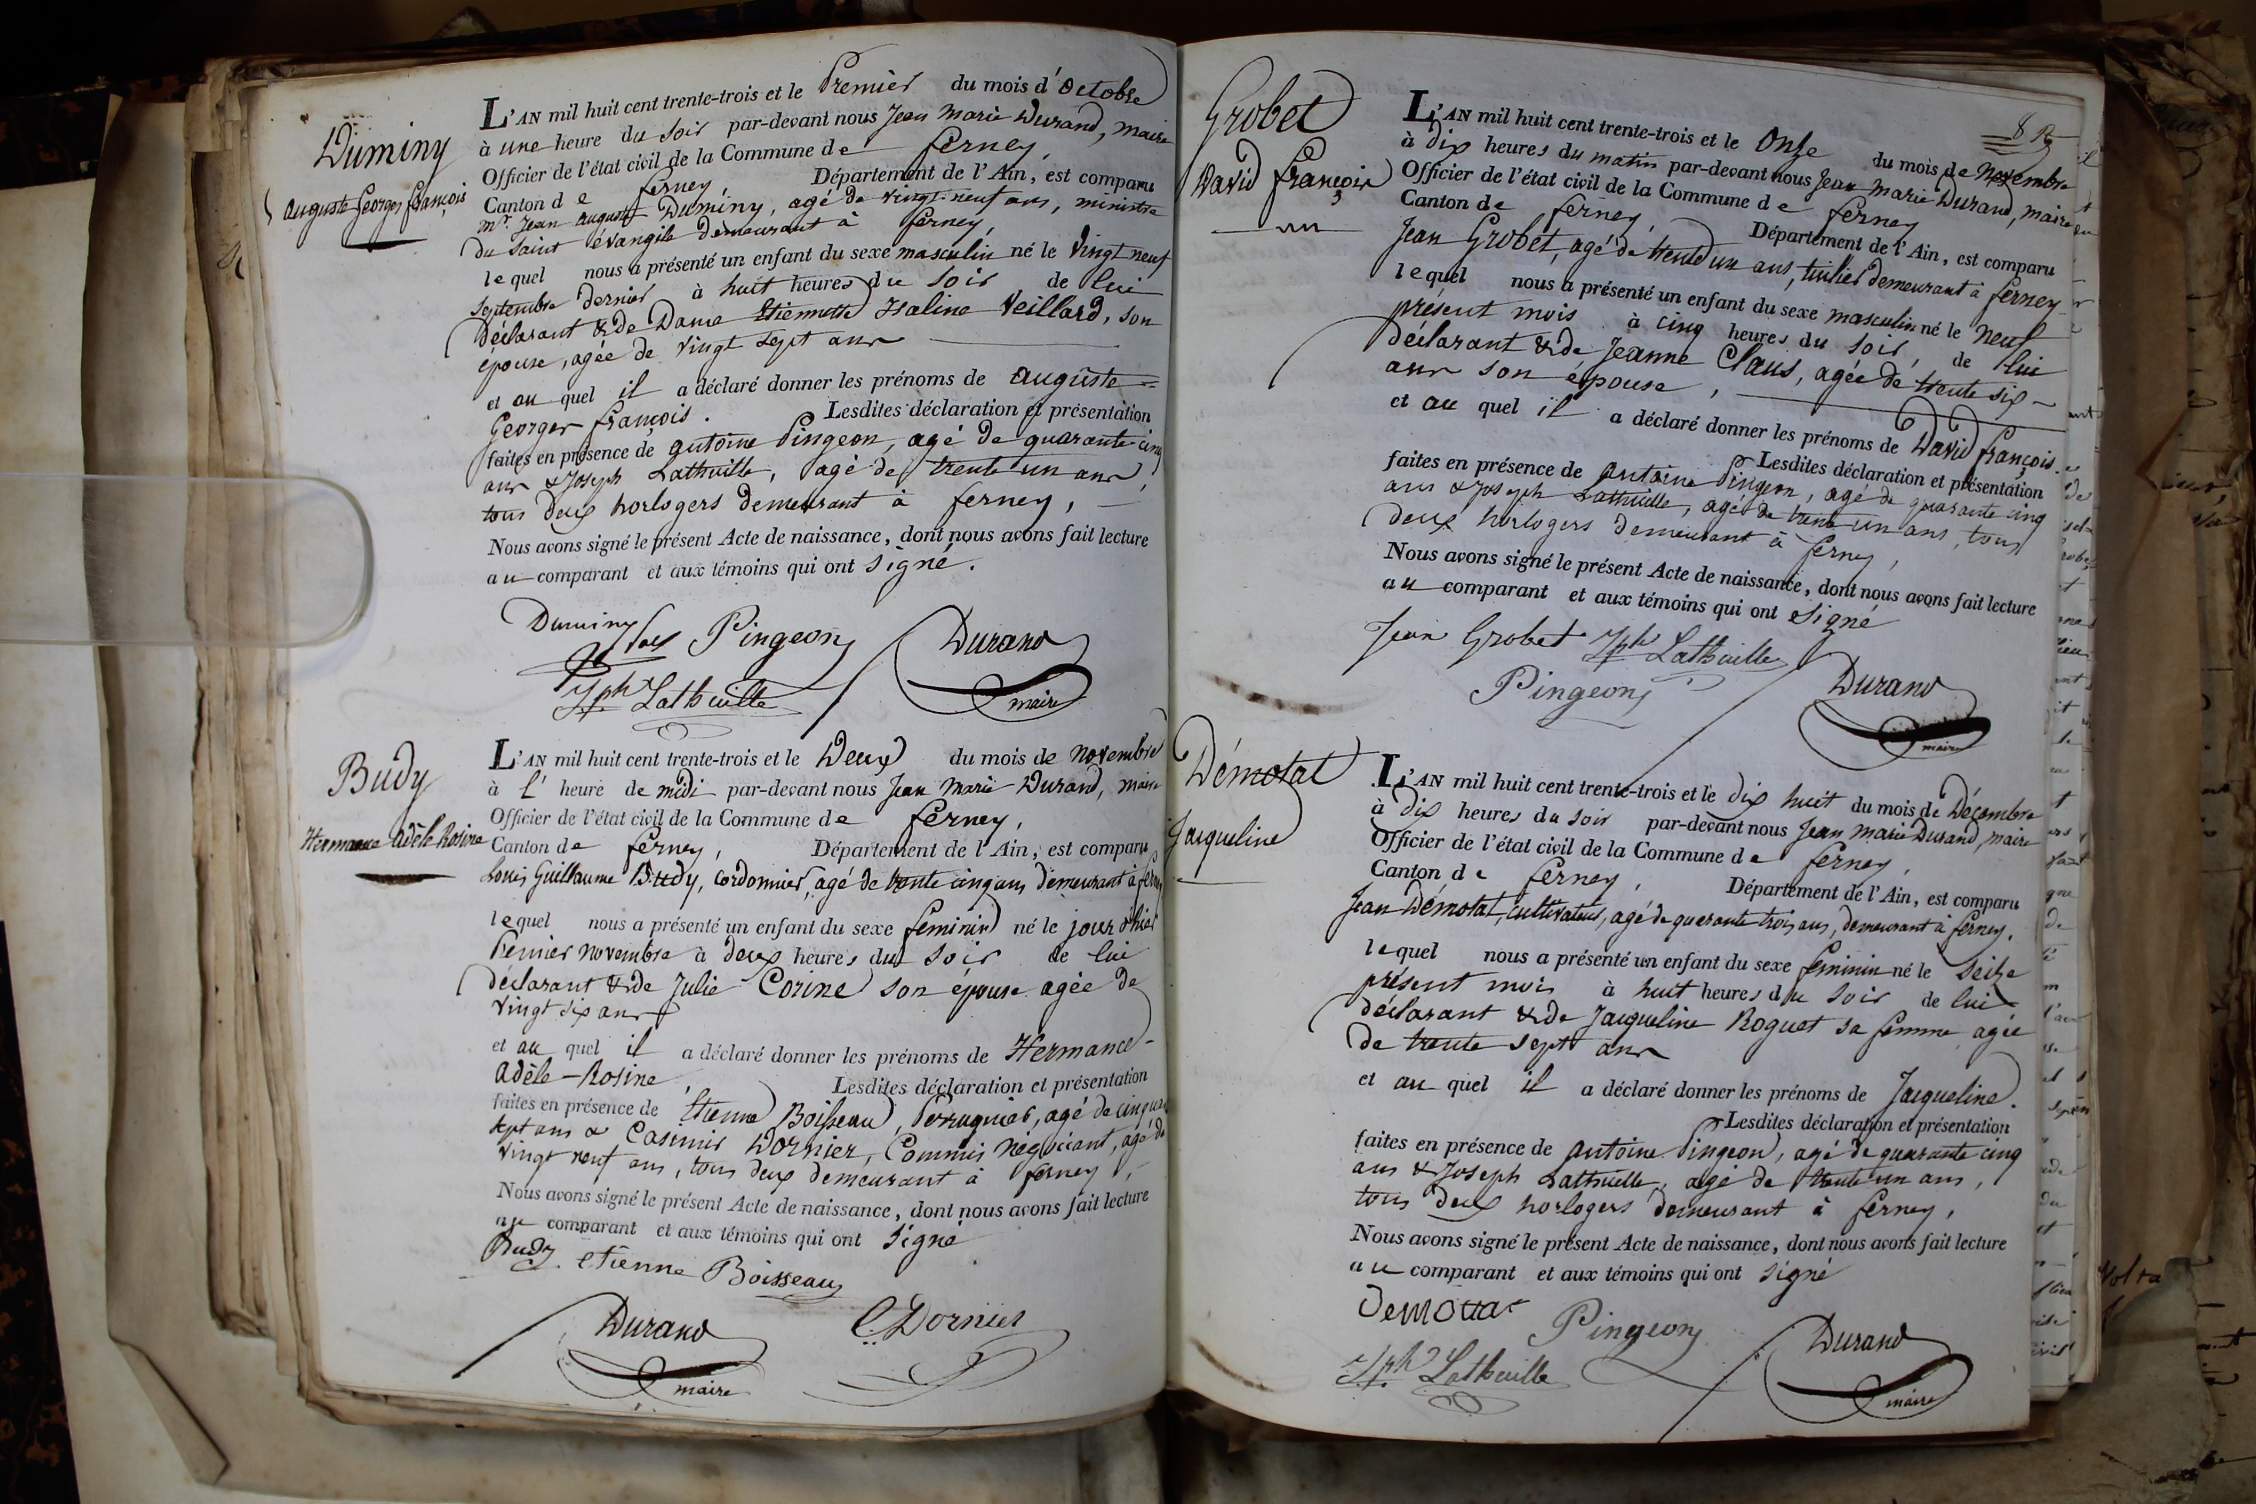 Duminy
Auguste Georges François
L'AN mil huit cent trente-trois et le Premier du mois d'Octobre
à une heure du soir par-devant nous Jean Marie Durand, maire
Officier de l'état civil de la Commune de ferney,
Canton de ferney, Département de l'Ain, est comparu
Mr. Jean auguste Duminy, agé de vingt-neuf ans, ministre
du Saint évangile demeurant à ferney,
lequel nous a présenté un enfant du sexe masculin né le vingt neuf
Septembre dernier à huit heures du soir de lui
déclarant & de Dame Etiennette Isaline Veillard, son
épouse, agée de vingt sept ans
et au quel il a déclaré donner les prénoms de auguste=
Georges françois. Lesdites déclaration et présentation
faites en présence de antoine Pingeon, agé de quarante-cinq
ans & Joseph Lathuille, agé de trente un ans,
tous deux horlogers demeurant à ferney,
Nous avons signé le présent Acte de naissance, dont nous avons fait lecture
au comparant et aux témoins qui ont signé.
Duminy Pingeon Durand
Jph Lathuille maire
Budy
Hermance Adèle Rosine
L'AN mil huit cent trente-trois et le Deux du mois de novembre
à l' heure de midi par-devant nous Jean Marie Durand, maire
Officier de l'état civil de la Commune de ferney,
Canton de ferney, Département de l'Ain, est comparu
Louis Guillaume Budy, cordonnier, agé de trente cinq ans demeurant à ferney
lequel nous a présenté un enfant du sexe feminin né le jour d'hier
Premier novembre à deux heures du soir de lui
déclarant & de Julie Corine son épouse agée de
vingt six ans
et au quel il a déclaré donner les prénoms de Hermance-
adèle-Rosine, Lesdites déclaration et présentation
faites en présence de Etienne Boisseau, Perruquier, agé de cinquante
sept ans & Casimir Dornier, Commis négociant, agé de
vingt neuf ans, tous deux demeurant à ferney,
Nous avons signé le présent Acte de naissance, dont nous avons fait lecture
au comparant et aux témoins qui ont signé
Budy. etienne Boisseau
Durand C. Dornier
maire
Grobet
David François
L'AN mil huit cent trente-trois et le Onze du mois de Novembre
à dix heures du matin par-devant nous Jean Marie Durand, maire
Officier de l'état civil de la Commune de ferney
Canton de ferney, Département de l'Ain, est comparu
Jean Grobet, agé de trente un ans, tuilier demeurant à ferney
lequel nous a présenté un enfant du sexe masculin né le neuf
présent mois à cinq heures du soir, de lui
déclarant & de Jeanne Claus, agée de trente six
ans son épouse,
et au quel il a déclaré donner les prénoms de David françois.
Lesdites déclaration et présentation
faites en présence de antoine Pingeon, agé de quarante cinq
ans & Joseph Lathuille, agé de trente un ans, tous
deux horlogers demeurant à ferney,
Nous avons signé le présent Acte de naissance, dont nous avons fait lecture
au comparant et aux témoins qui ont signé
Jean Grobet Jph Lathuille
Pingeon Durand
maire
Démotat
Jacqueline
L'AN mil huit cent trente-trois et le dix huit du mois de Décembre
à dix heures du soir par-devant nous Jean Marie Durand, maire
Officier de l'état civil de la Commune de ferney,
Canton de ferney, Département de l'Ain, est comparu
Jean Démotat, cultivateur, agé de quarante trois ans, demeurant à ferney.
lequel nous a présenté un enfant du sexe feminin né le seize
présent mois à huit heures du soir de lui
déclarant & de Jacqueline Roguet sa femme agée
de trente sept ans
et au quel il a déclaré donner les prénoms de Jacqueline.
Lesdites déclaration et présentation
faites en présence de antoine Pingeon, agé de quarante cinq
ans & Joseph Lathuille, agé de trente un ans,
tous deux horlogers demeurant à ferney,
Nous avons signé le présent Acte de naissance, dont nous avons fait lecture
au comparant et aux témoins qui ont signé
Demotta Pingeon Durand
Jph Lathuille maire